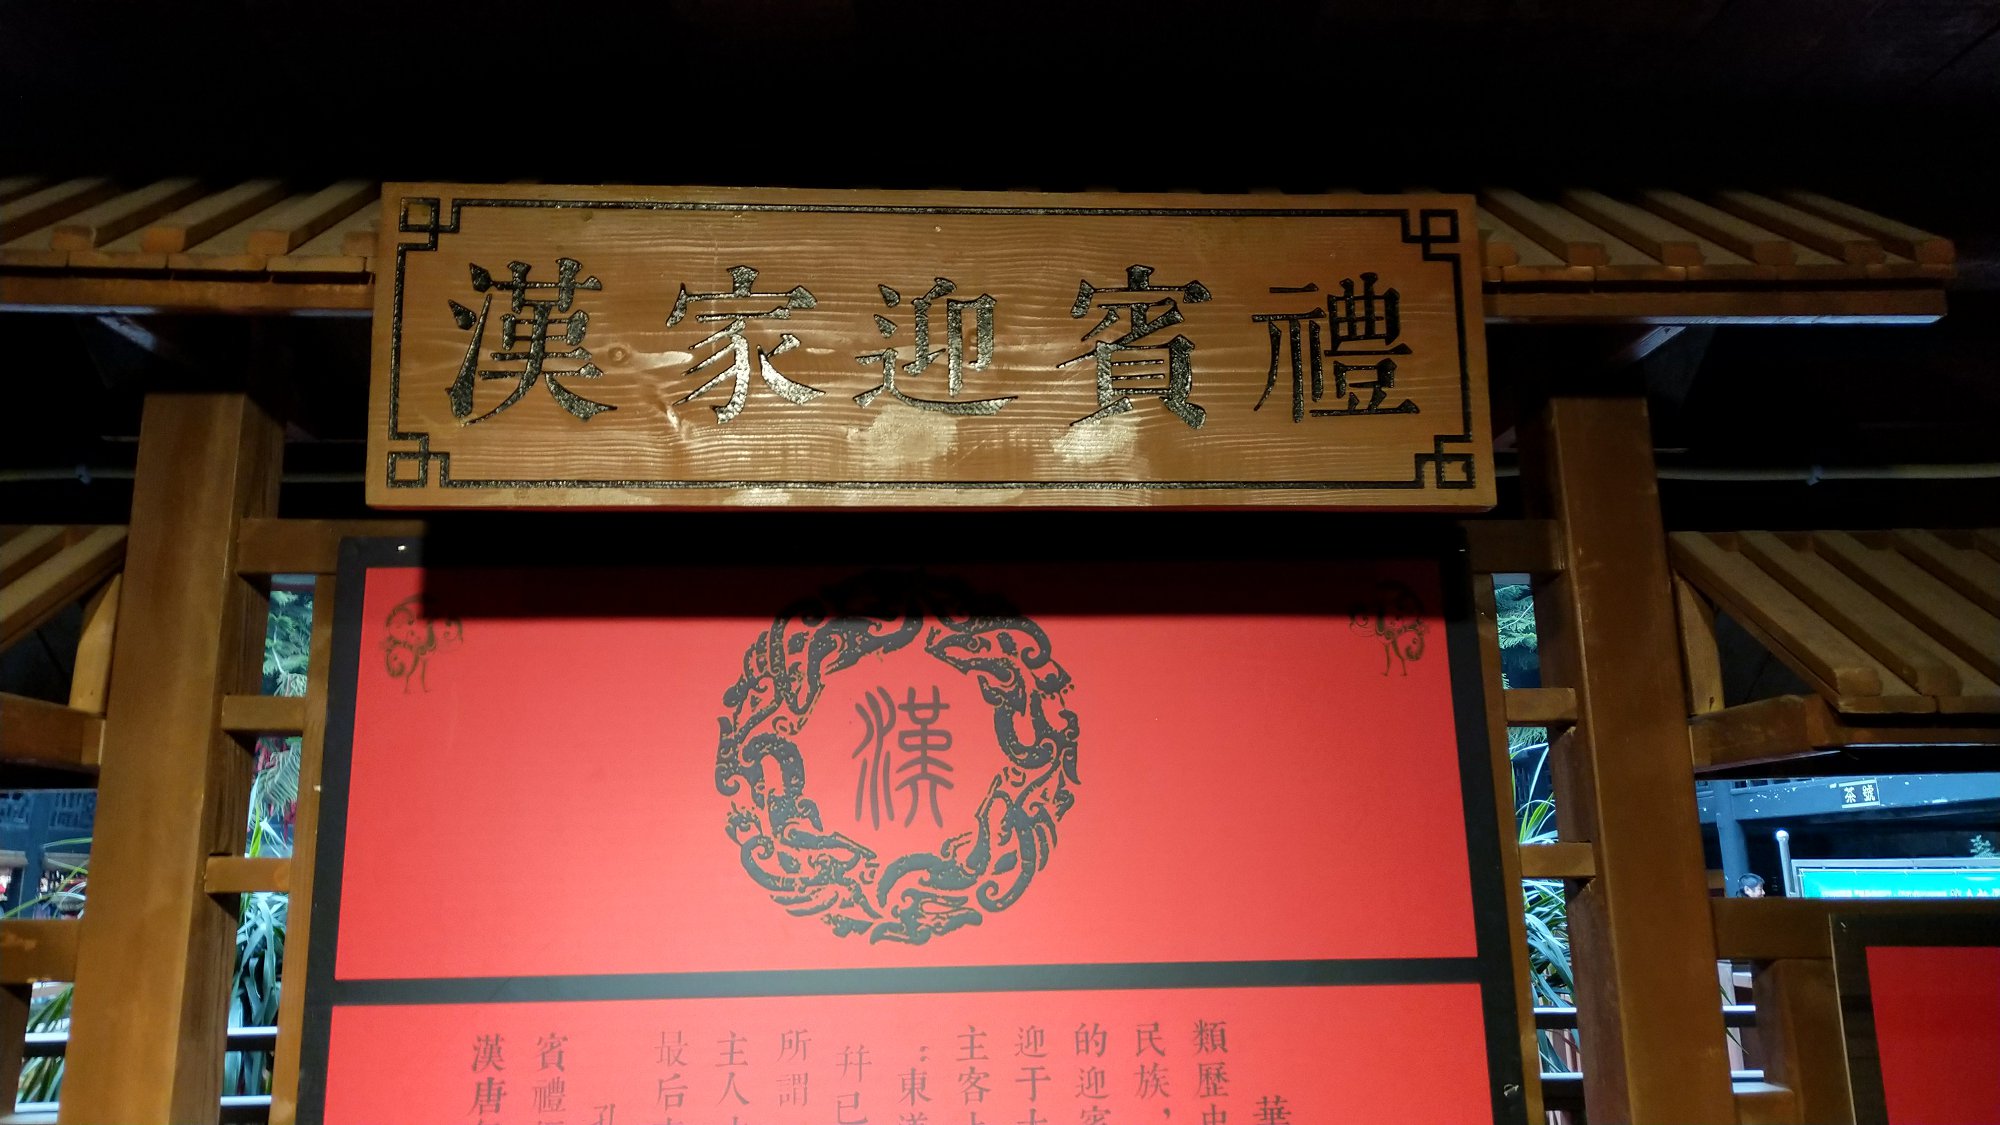 漢家迎賓禮
漢
華
類歷史
民族，
的迎賓
迎于
主客
：東漢
幷已
所謂
主人
最后
孔
賓禮
漢唐
茶號